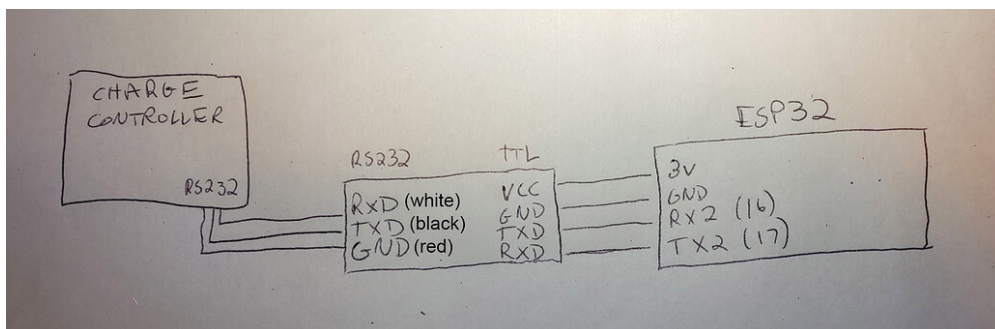 CHARGE
CONTROLLER
RS232
RS232
TTL
RXD (white)
TXD (black)
GND (red)
VCC
GND
TXD
RXD
ESP32
3V
GND
RX2 (16)
TX2 (17)